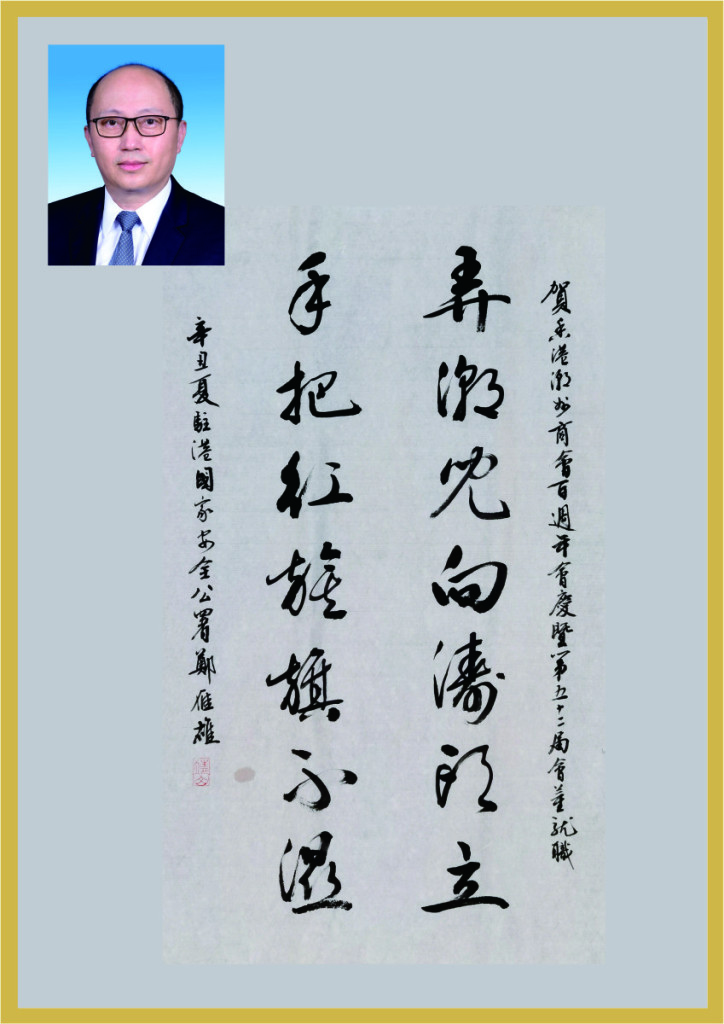 賀香港潮州商會百週年會慶暨第五十二屆會董就職
弄潮兒向濤頭立
手把紅旗旗不濕
辛丑夏駐港國家安全公署鄭雁雄